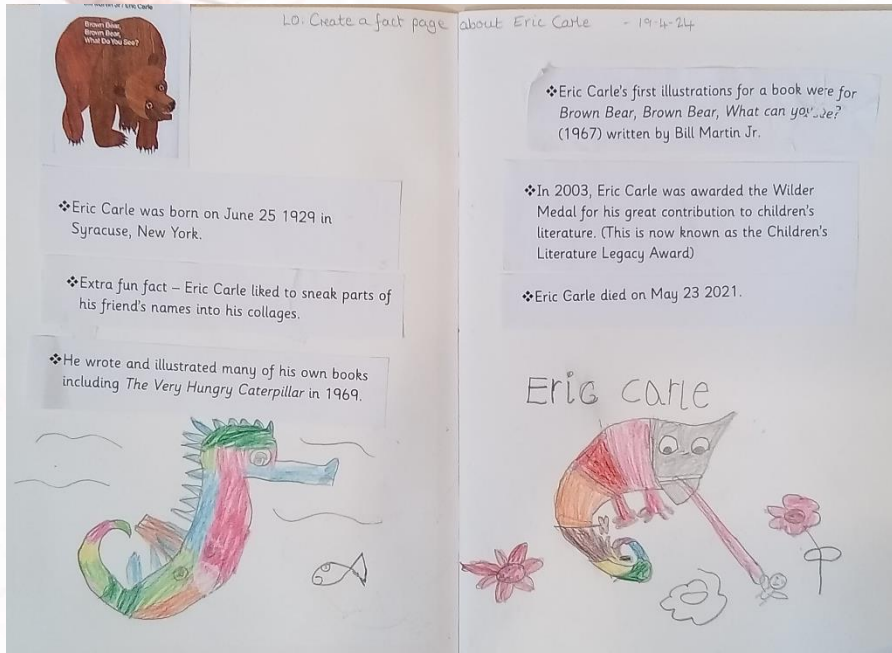 Brown Bear,
Brown Bear,
What Do You See?
LO. Create a fact page about Eric Carle - 19-4-24
❖Eric Carle was born on June 25 1929 in
Syracuse, New York.
❖Extra fun fact – Eric Carle liked to sneak parts of
his friend's names into his collages.
❖He wrote and illustrated many of his own books
including The Very Hungry Caterpillar in 1969.
❖Eric Carle's first illustrations for a book were for
Brown Bear, Brown Bear, What can you see?
(1967) written by Bill Martin Jr.
❖In 2003, Eric Carle was awarded the Wilder
Medal for his great contribution to children's
literature. (This is now known as the Children's
Literature Legacy Award)
❖Eric Carle died on May 23 2021.
Eric Carle